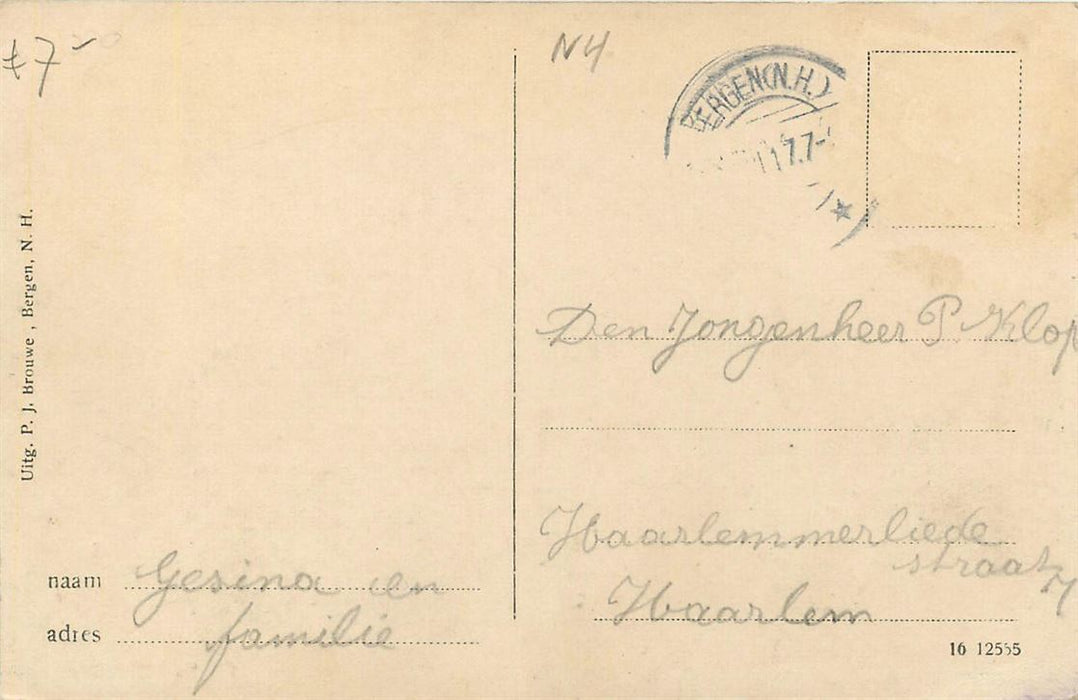 €7-
N4
BERGEN (N.H.)
7.7-
Uitg. P. J. Brouwe , Bergen, N. H.
Den Jongenheer P. Klop
Haarlemmerliede
straat
Haarlem
naam Gesina en
adres familie
16 12555